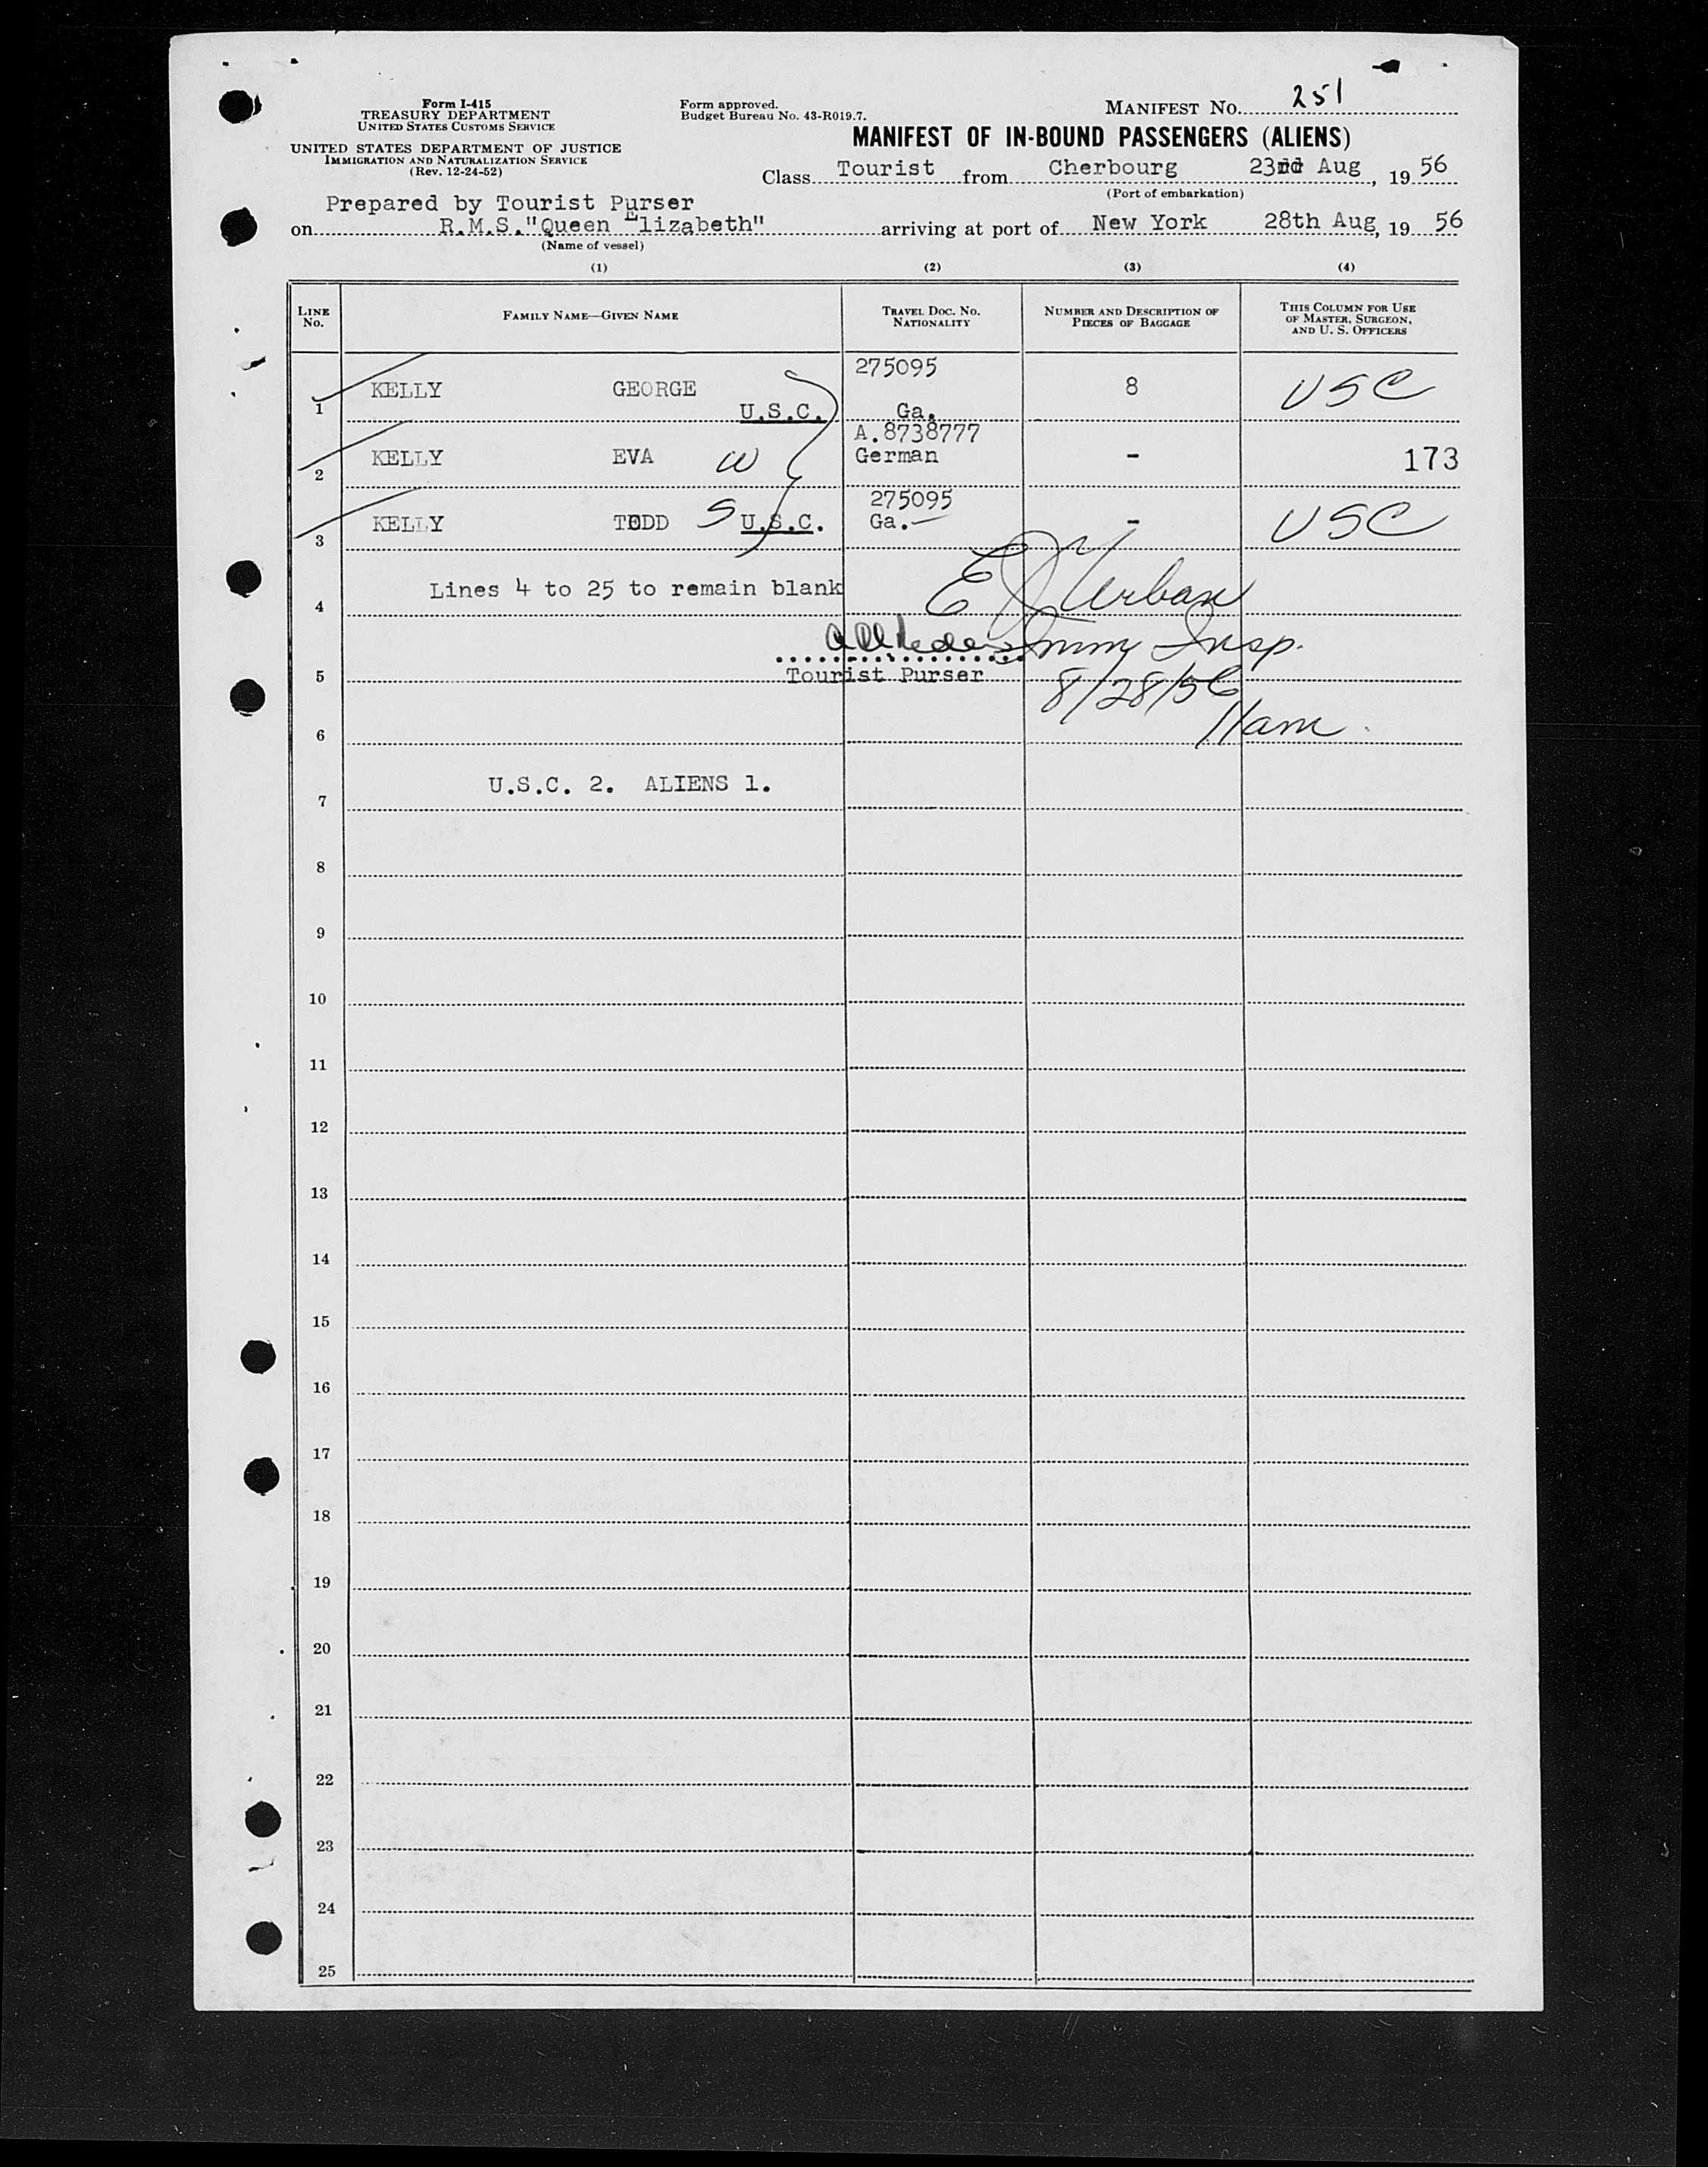 Form I-415
TREASURY DEPARTMENT
UNITED STATES CUSTOMS SERVICE
UNITED STATES DEPARTMENT OF JUSTICE
IMMIGRATION AND NATURALIZATION SERVICE
(Rev. 12-24-52)
Form approved.
Budget Bureau No. 43-R019.7.
MANIFEST No. 251
MANIFEST OF IN-BOUND PASSENGERS (ALIENS)
Class Tourist from Cherbourg 23rd Aug, 19 56
(Port of embarkation)
Prepared by Tourist Purser
on R.M.S."Queen Elizabeth" arriving at port of New York 28th Aug, 19 56
(Name of vessel)
(1) (2) (3) (4)
LINE No. FAMILY NAME—GIVEN NAME TRAVEL DOC. NO. NATIONALITY NUMBER AND DESCRIPTION OF PIECES OF BAGGAGE THIS COLUMN FOR USE OF MASTER, SURGEON, AND U. S. OFFICERS
275095
1 KELLY GEORGE 8 USC
U.S.C. Ga.
A.8738777
2 KELLY EVA W German - 173
275095
3 KELLY TODD S U.S.C. Ga. - USC
4 Lines 4 to 25 to remain blank E J Urban
Imm Insp.
5 Tourist Purser 8/28/56
6 11am
7 U.S.C. 2. ALIENS 1.
8
9
10
11
12
13
14
15
16
17
18
19
20
21
22
23
24
25